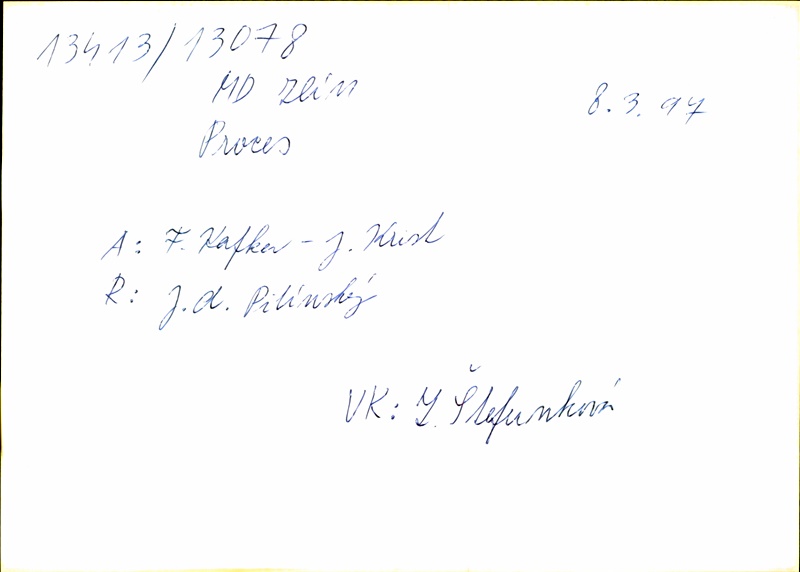 13413/13078
MD Zlín
8.3.97
Proces
A: F. Kafka - J. Krist
R: J. A. Pitínský
VK: Z. Štefunková